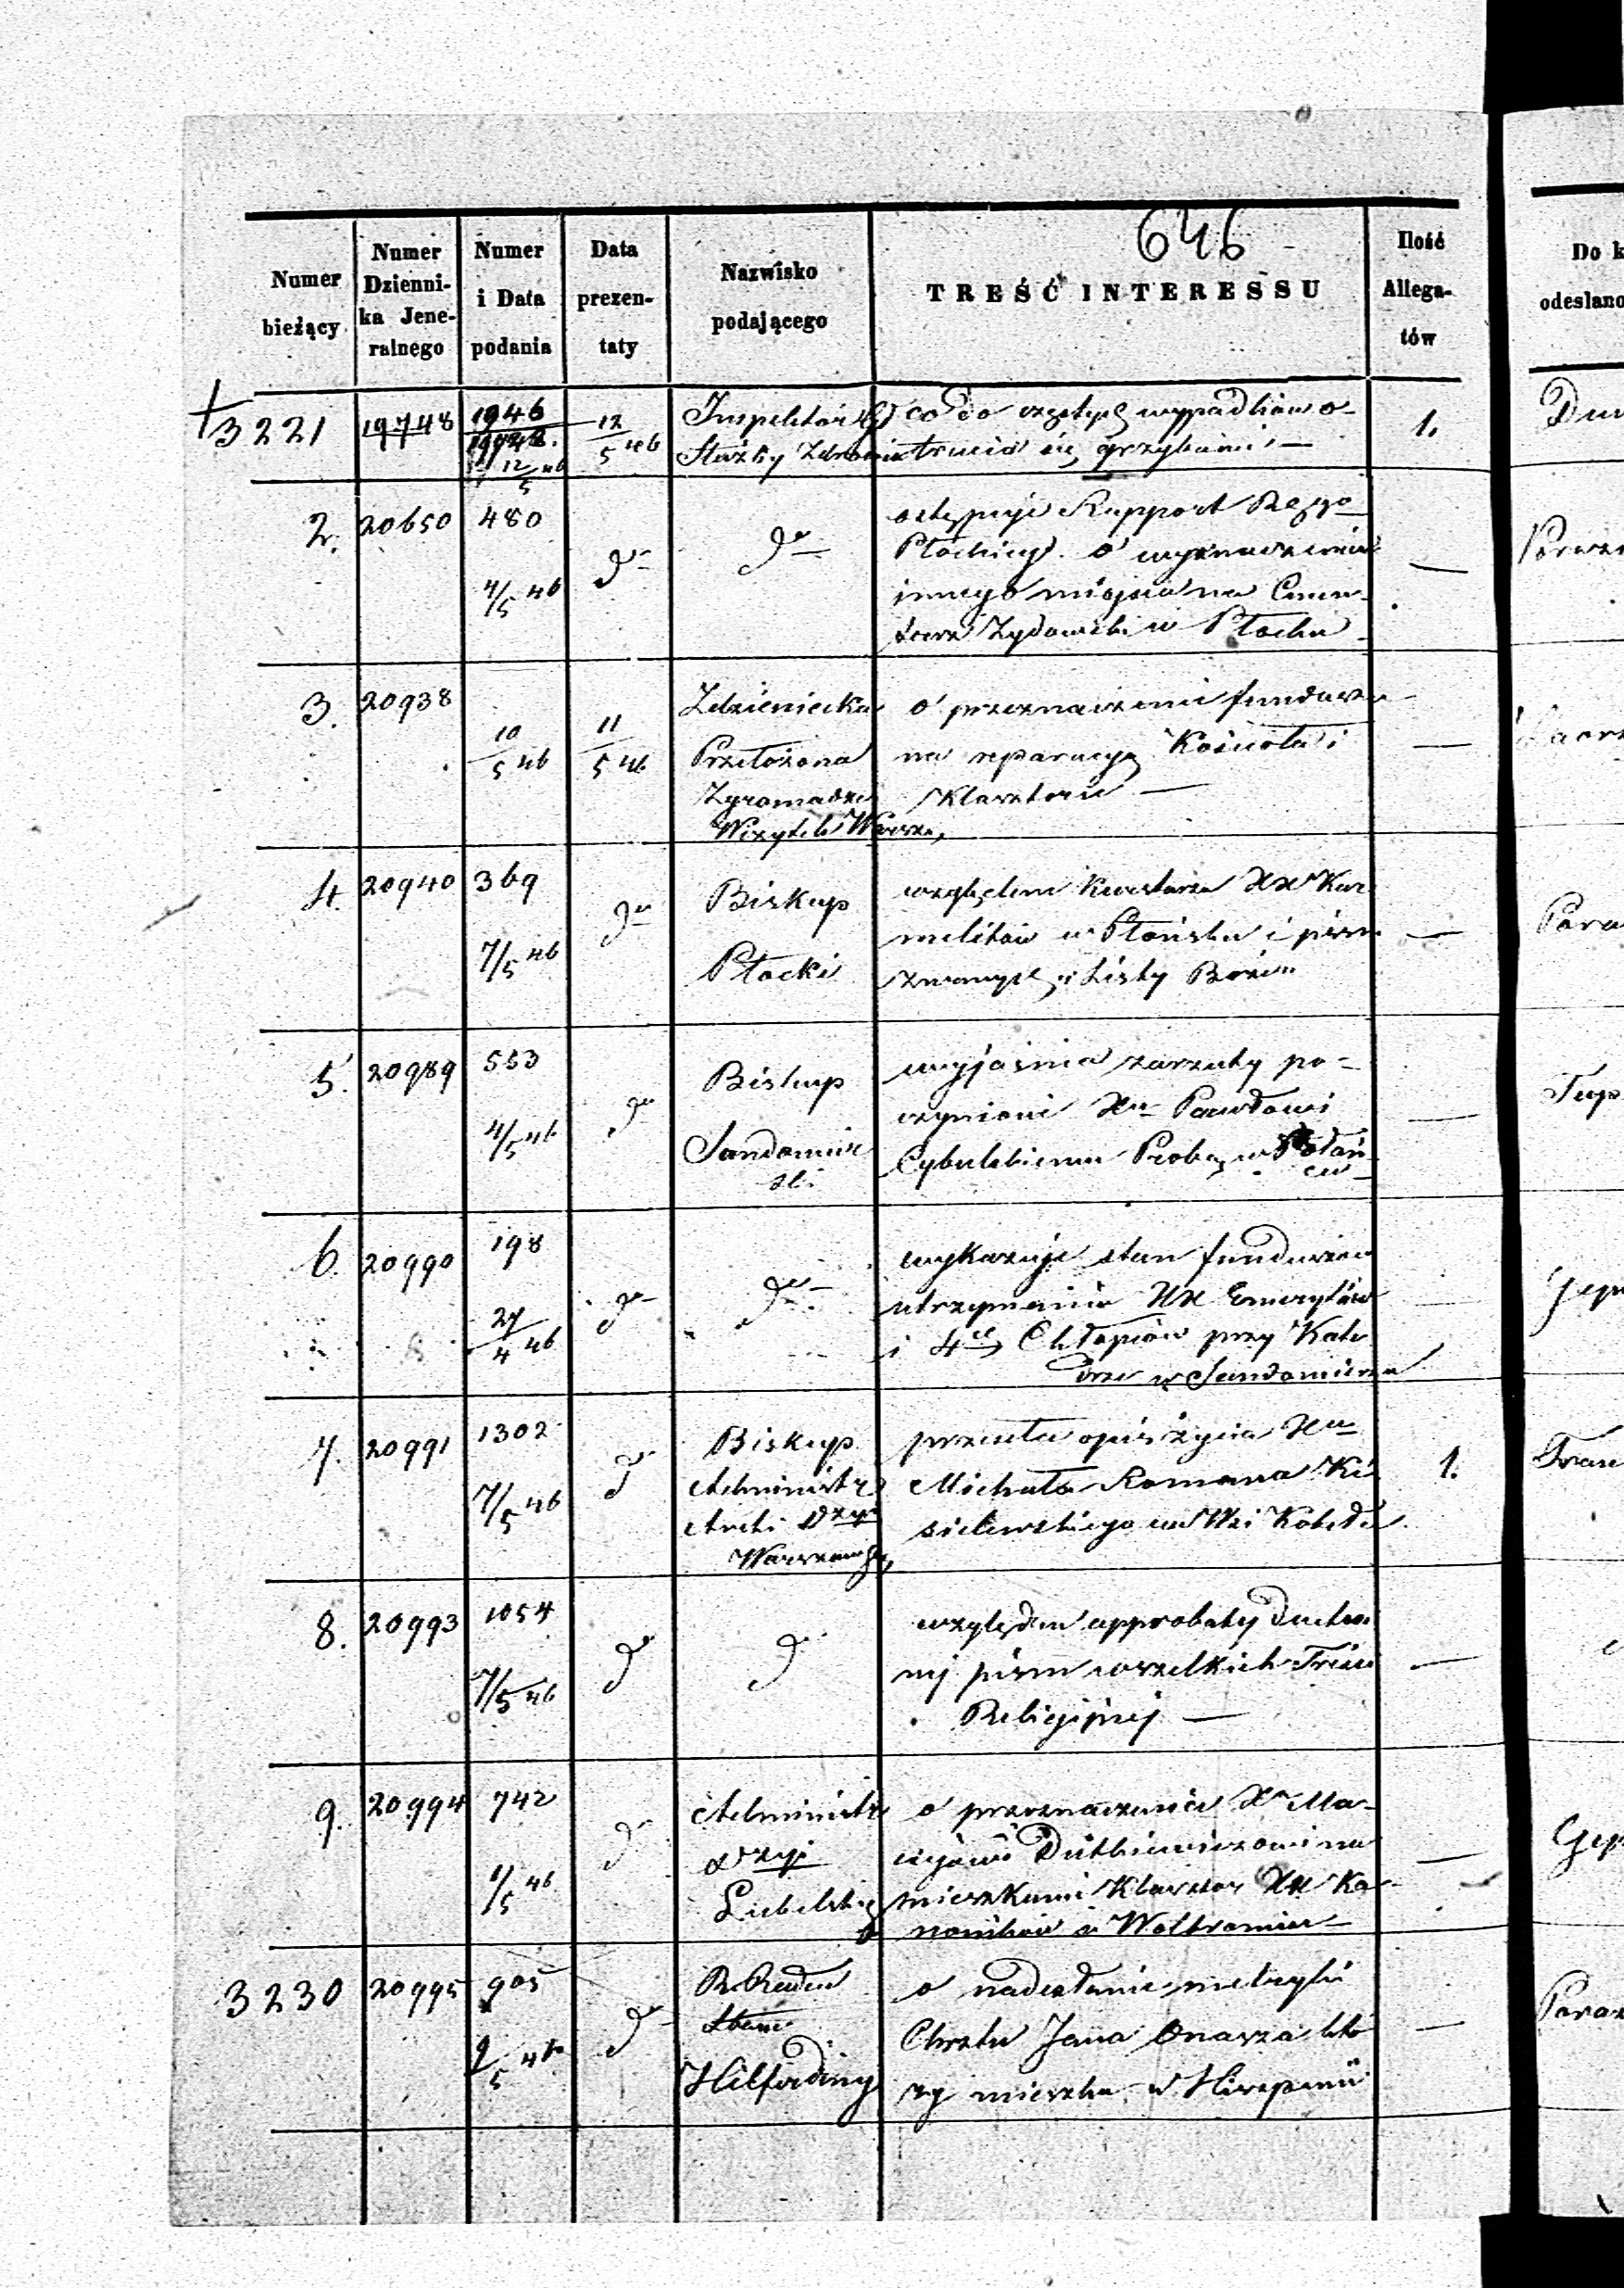 646
Numer bieżący
Numer Dzienni-ka Jene-ralnego
Numer i Data podania
Data prezen-taty
Nazwisko podającego
TREŚĆ INTERESSU
Ilość Allega-tów
Do k
odesłano
3221 19748 1946 12/5 46 12/5 46
Inspektor
Służby Zdrowia
co do częstych wypadków o-
trucia się grzybami —
1.
2. 20650 480 4/5 46 do do
odstępuje Rapport
o wyznaczenie
innego miejsca na Cmen-
tarz Żydowski w Płocku —
—
3. 20938 10/5 46 11/5 46
Zdzieniecka
Przełożona
Zgromadze
Wizytek Warsza,
o przeznaczenie fundusz
na reparacyą Kościoła i
Klasztoru —
—
4. 20940 369 7/5 46 do
Biskup
Płocki
względem Kwestarza XX Kar
melitów w Płońsku i pism
zwanych „Listy Boże"
—
5. 20989 553 4/5 46 do
Biskup
Sandomir
ski
wyjaśnia zarzuty po-
czynione Xu Pawłowi
Cybulskiemu Probo. w Połań
cu
—
6. 20990 198 27/4 46 do do
wykazuje stan funduszów
utrzymania XX Emerytów
i 4ch Chłopców przy Kate
drze w Sandomierzu
—
7. 20991 1302 7/5 46 do
Biskup
Administr
Archi Dyec
Warszawsk
przesyła opis życia Xa
Michała Romana Ki
sielewskiego
1.
8. 20993 1054 7/5 46 do do
względem approbaty Duchow
nej pism wszelkich Treści
Religijnej —
—
9. 20994 742 1/5 46 do
Administr
Dyec
Lubelskiej
o przeznaczenie Xu Ma-
ciejowi Dutkiewiczowi na
mieszkanie Klasztor XX Ka-
noników w Wolbromiu —
—
3230 20995 905 9/5 46 do
R. Radca
Stanu
Hilferding
o nadesłanie metryki
Chrztu Jana Onasza któ
ry mieszka w Hiszpanii
—